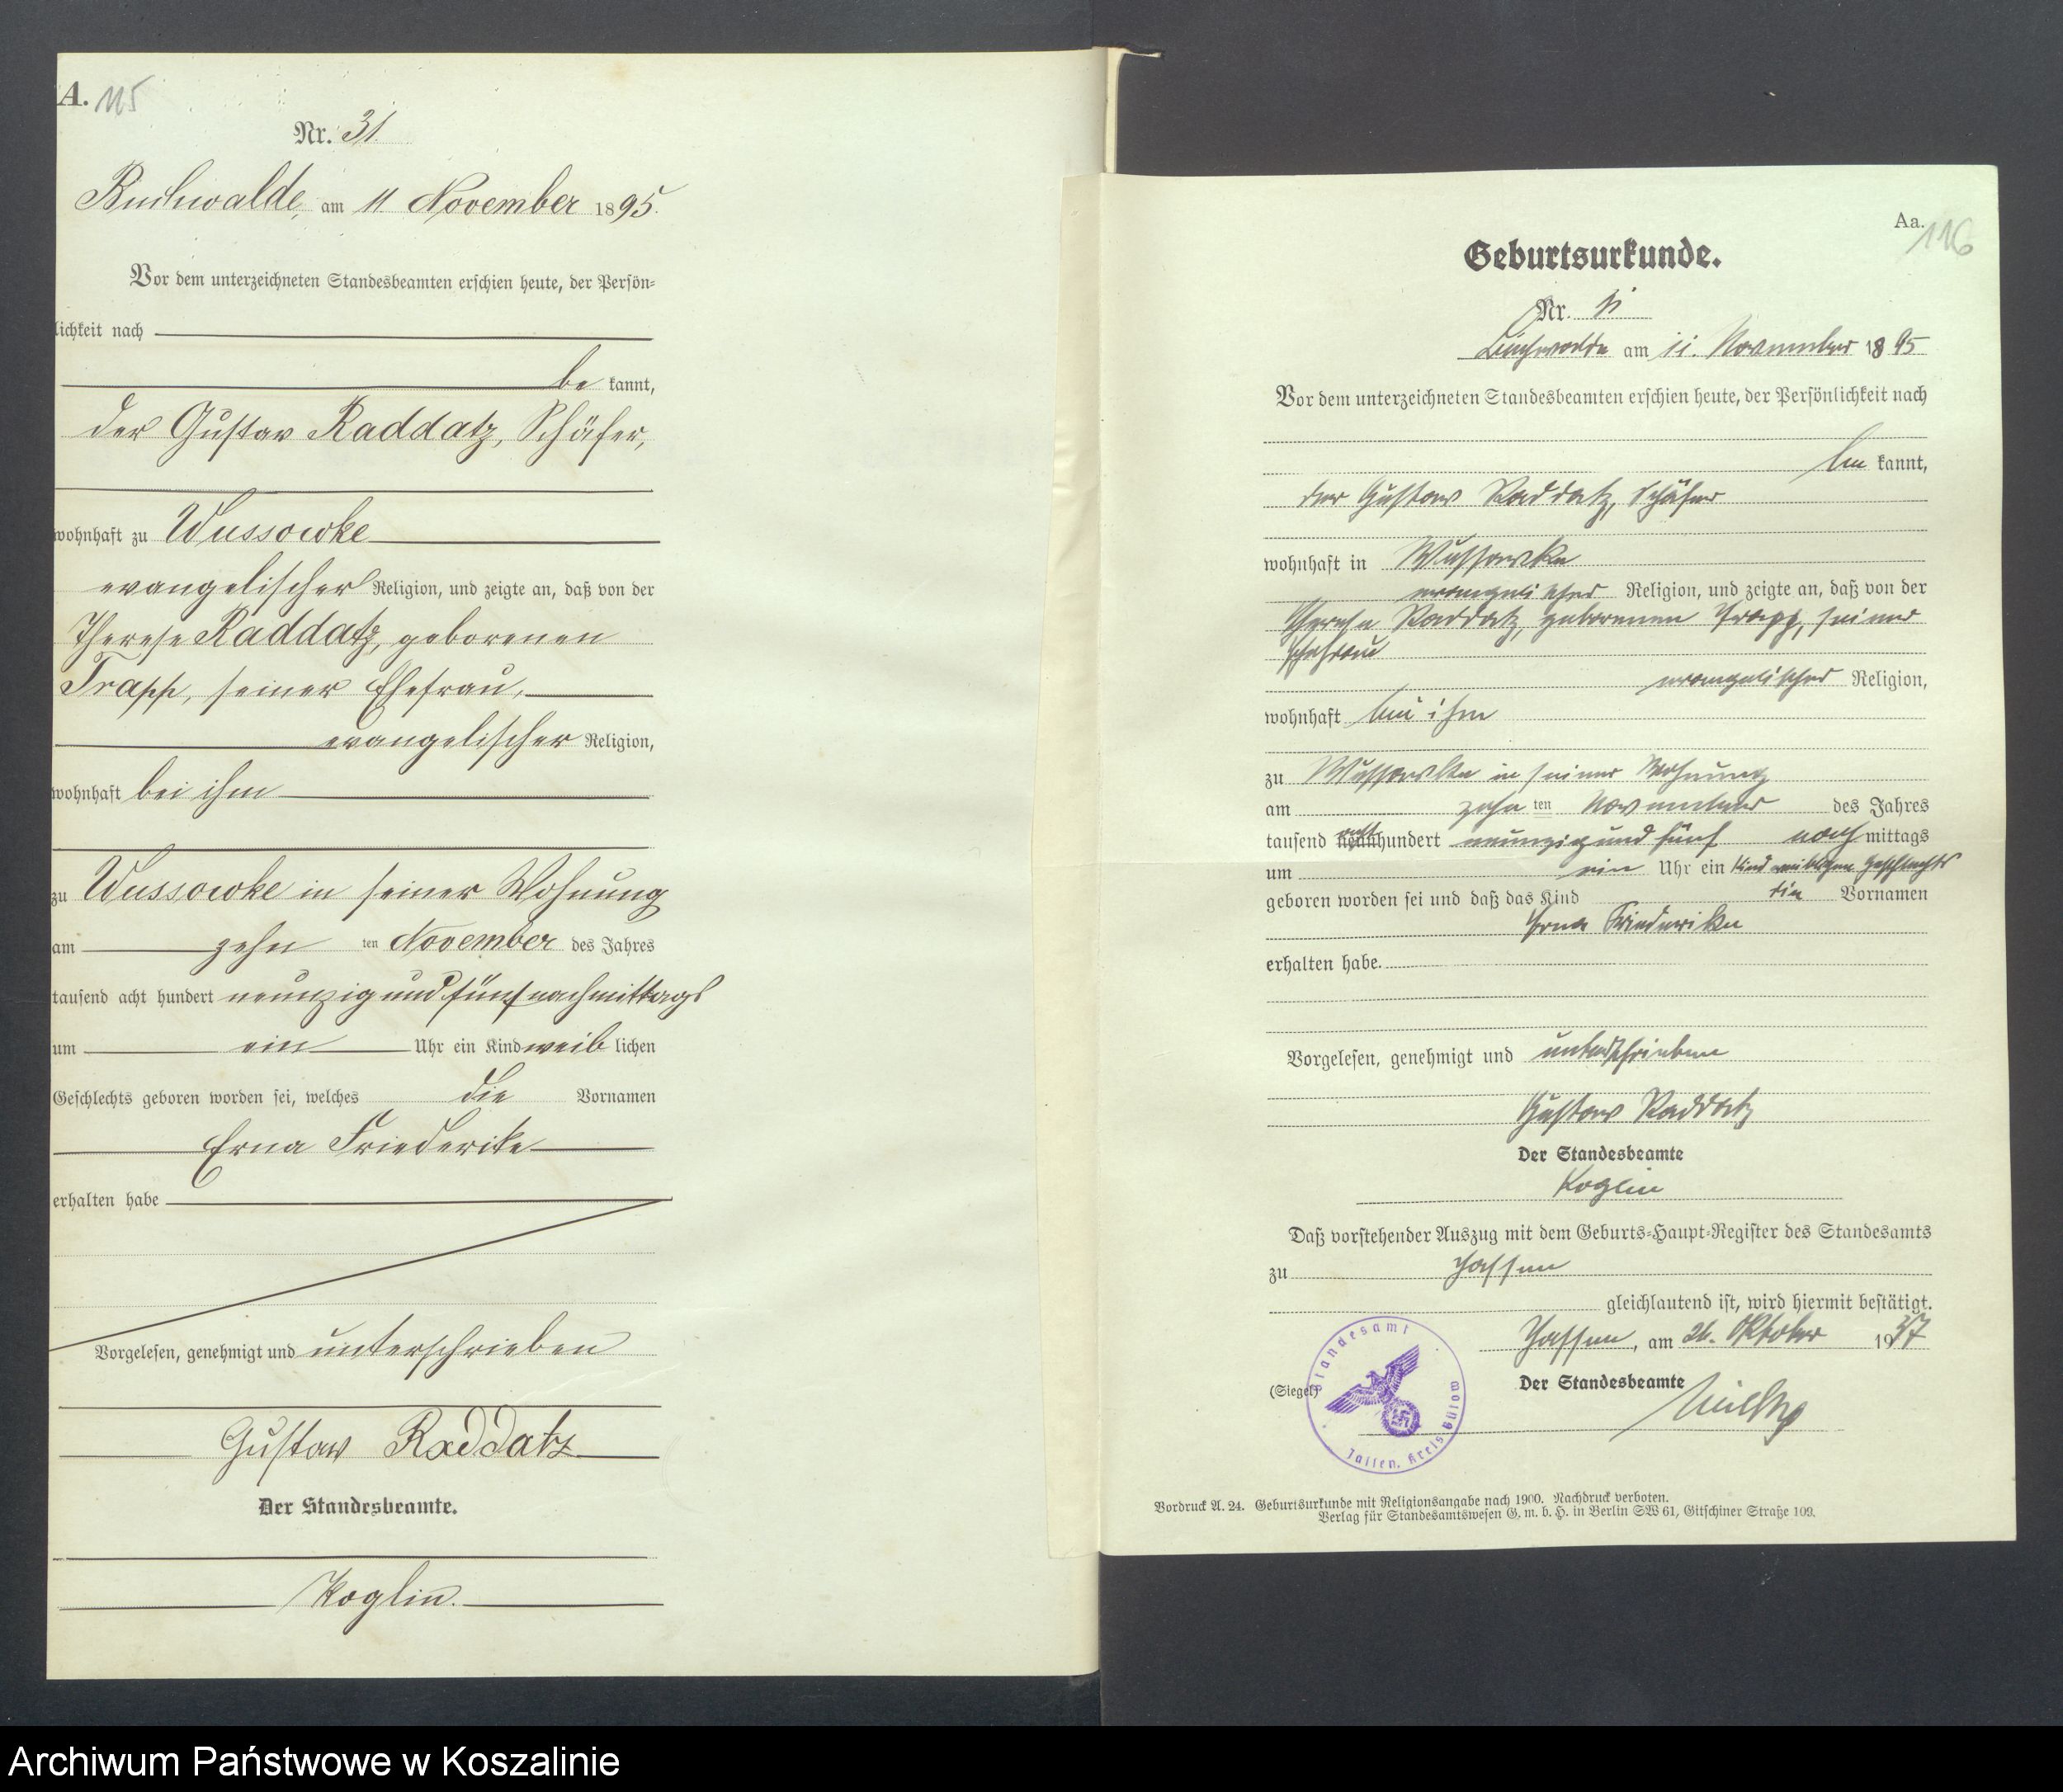 A. 115
Nr. 31.
Buchwalde, am 11. November 1895.
Vor dem unterzeichneten Standesbeamten erschien heute, der Persön-
lichkeit nach
be kannt,
der Gustav Raddatz, Schäfer,
wohnhaft zu Wussowke
evangelischer Religion, und zeigte an, daß von der
Therese Raddatz, geborenen
Trapp, seiner Ehefrau,
evangelischer Religion,
wohnhaft bei ihm
zu Wussowke in seiner Wohnung
am zehn ten November des Jahres
tausend acht hundert neunzig und fünf nachmittags
um ein Uhr ein Kind weib lichen
Geschlechts geboren worden sei, welches die Vornamen
Erna Friederike
erhalten habe
Vorgelesen, genehmigt und unterschrieben
Gustav Raddatz
Der Standesbeamte.
Koglin.
Aa. 116
Geburtsurkunde.
Nr.
Buchwalde am 11. November 1895
Vor dem unterzeichneten Standesbeamten erschien heute, der Persönlichkeit nach
be kannt,
der Gustav Raddatz, Schäfer
wohnhaft in Wussowke
evangelischer Religion, und zeigte an, daß von der
Therese Raddatz, geborenen Trapp, seiner
Ehefrau
evangelischer Religion,
wohnhaft bei ihm
zu Wussowke in seiner Wohnung
am zehn ten November des Jahres
tausend acht neunhundert neunzig und fünf nach mittags
um ein Uhr ein Kind weiblichen Geschlechts
geboren worden sei und daß das Kind die Vornamen
Erna Friederike
erhalten habe.
Vorgelesen, genehmigt und unterschrieben
Gustav Raddatz
Der Standesbeamte
Koglin
Daß vorstehender Auszug mit dem Geburts-Haupt-Register des Standesamts
zu Jassen
gleichlautend ist, wird hiermit bestätigt.
Jassen, am 26. Oktober 1937
(Siegel) Der Standesbeamte
Standesamt Jassen, Kreis Bütow
Vordruck A. 24. Geburtsurkunde mit Religionsangabe nach 1900. Nachdruck verboten.
Verlag für Standesamtswesen G. m. b. H. in Berlin SW 61, Gitschiner Straße 109.
Archiwum Państwowe w Koszalinie